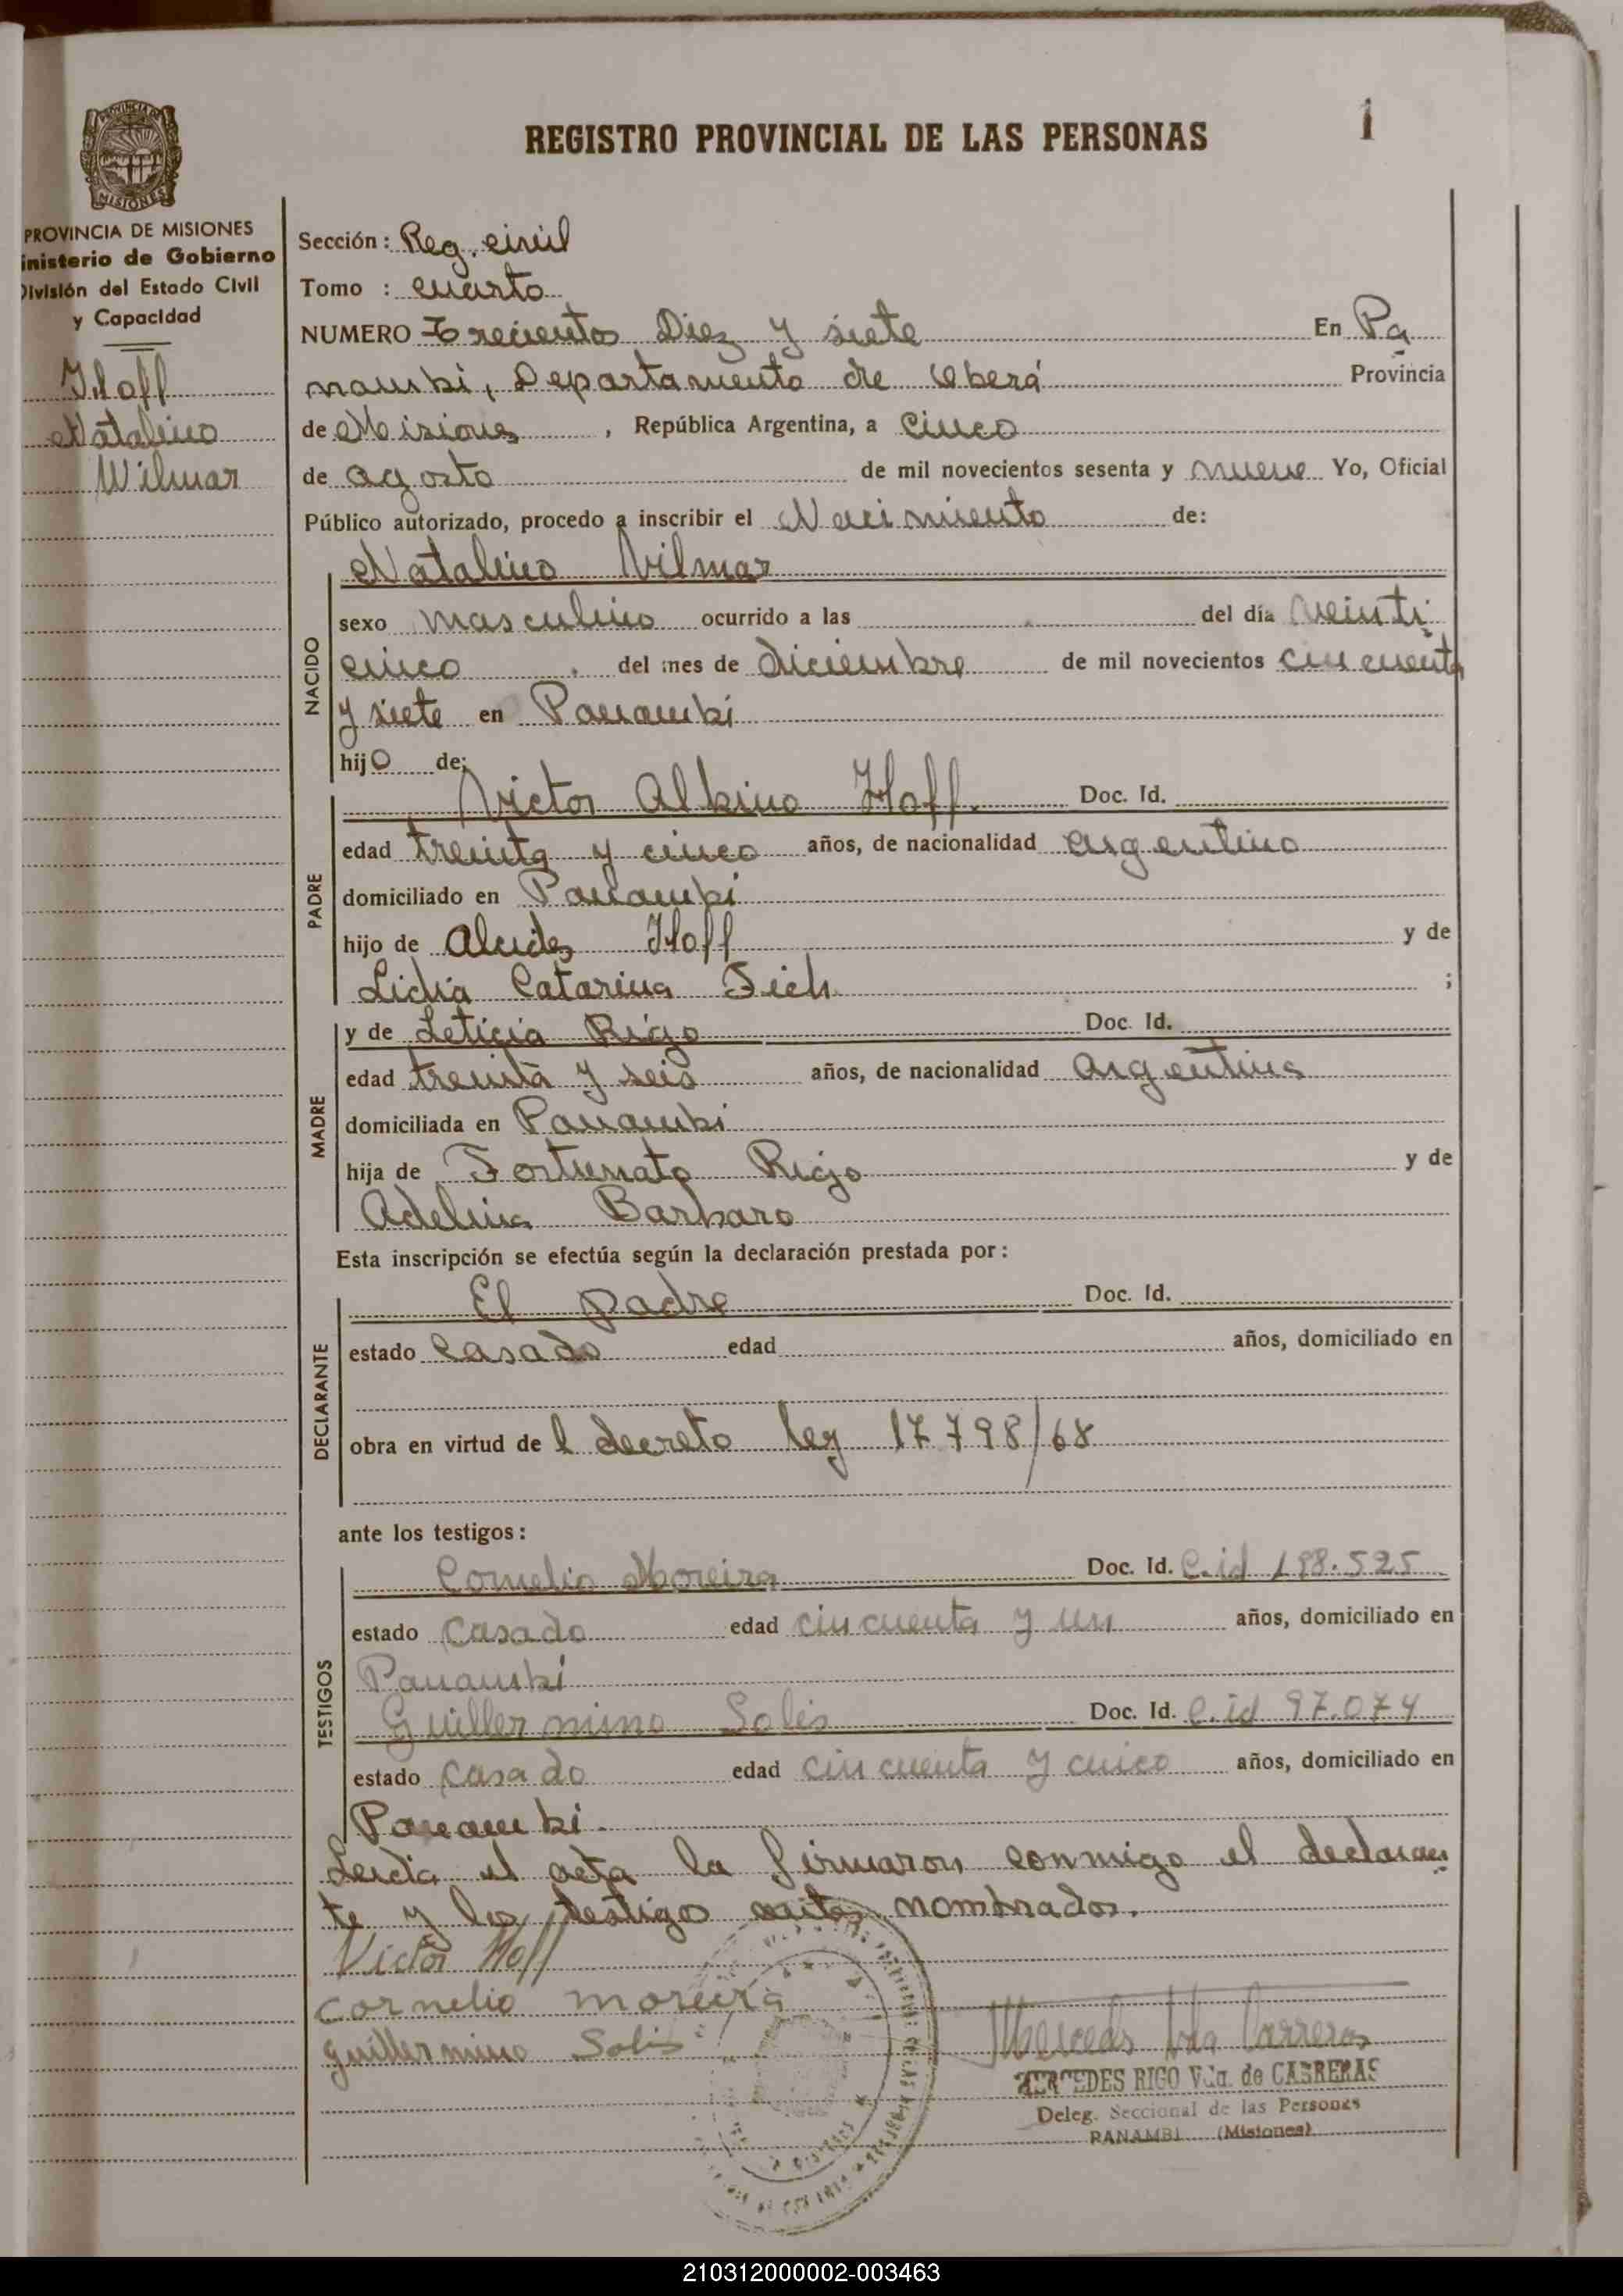 REGISTRO PROVINCIAL DE LAS PERSONAS
1
PROVINCIA DE MISIONES
PROVINCIA DE MISIONES
inisterio de Gobierno
División del Estado Civil
y Capacidad
Hoff
Natalino
Wilmar
Sección: Reg. civil
Tomo : cuarto
NUMERO Trecientos Diez y siete En Pa
nambi, Departamento de Oberá Provincia
de Misiones, República Argentina, a Cinco
de agosto de mil novecientos sesenta y nueve Yo, Oficial
Público autorizado, procedo a inscribir el Nacimiento de:
NACIDO
Natalino Vilmar
sexo masculino ocurrido a las del día veinti
cinco del mes de diciembre de mil novecientos cincuenta
y siete en Panambi
hijo de:
PADRE
Victor Albino Hoff. Doc. Id.
edad treinta y cinco años, de nacionalidad argentino
domiciliado en Panambi
hijo de Alcides Hoff y de
Lidia Catarina Fich ;
MADRE
y de Leticia Rigo Doc. Id.
edad treinta y seis años, de nacionalidad argentina
domiciliada en Panambi
hija de Fortunato Rigo y de
Adelina Barbaro
Esta inscripción se efectúa según la declaración prestada por:
DECLARANTE
El padre Doc. Id.
estado Casado edad años, domiciliado en
obra en virtud del decreto ley 17.798/68
ante los testigos:
TESTIGOS
Cornelio Moreira Doc. Id. C.id 198.525
estado Casado edad cincuenta y un años, domiciliado en
Panambi
Guillermino Solis Doc. Id. C.id 97.074
estado Casado edad cincuenta y cinco años, domiciliado en
Panambi.
Leida el acta la firmaron conmigo el declaran
te y los testigos nombrados.
Victor Hoff
cornelio moreira
guillermino Solis
Mercedes Vda Carreras
MERCEDES RIGO Vda. de CARRERAS
Deleg. Seccional de las Personas
PANAMBI (Misiones)
210312000002-003463